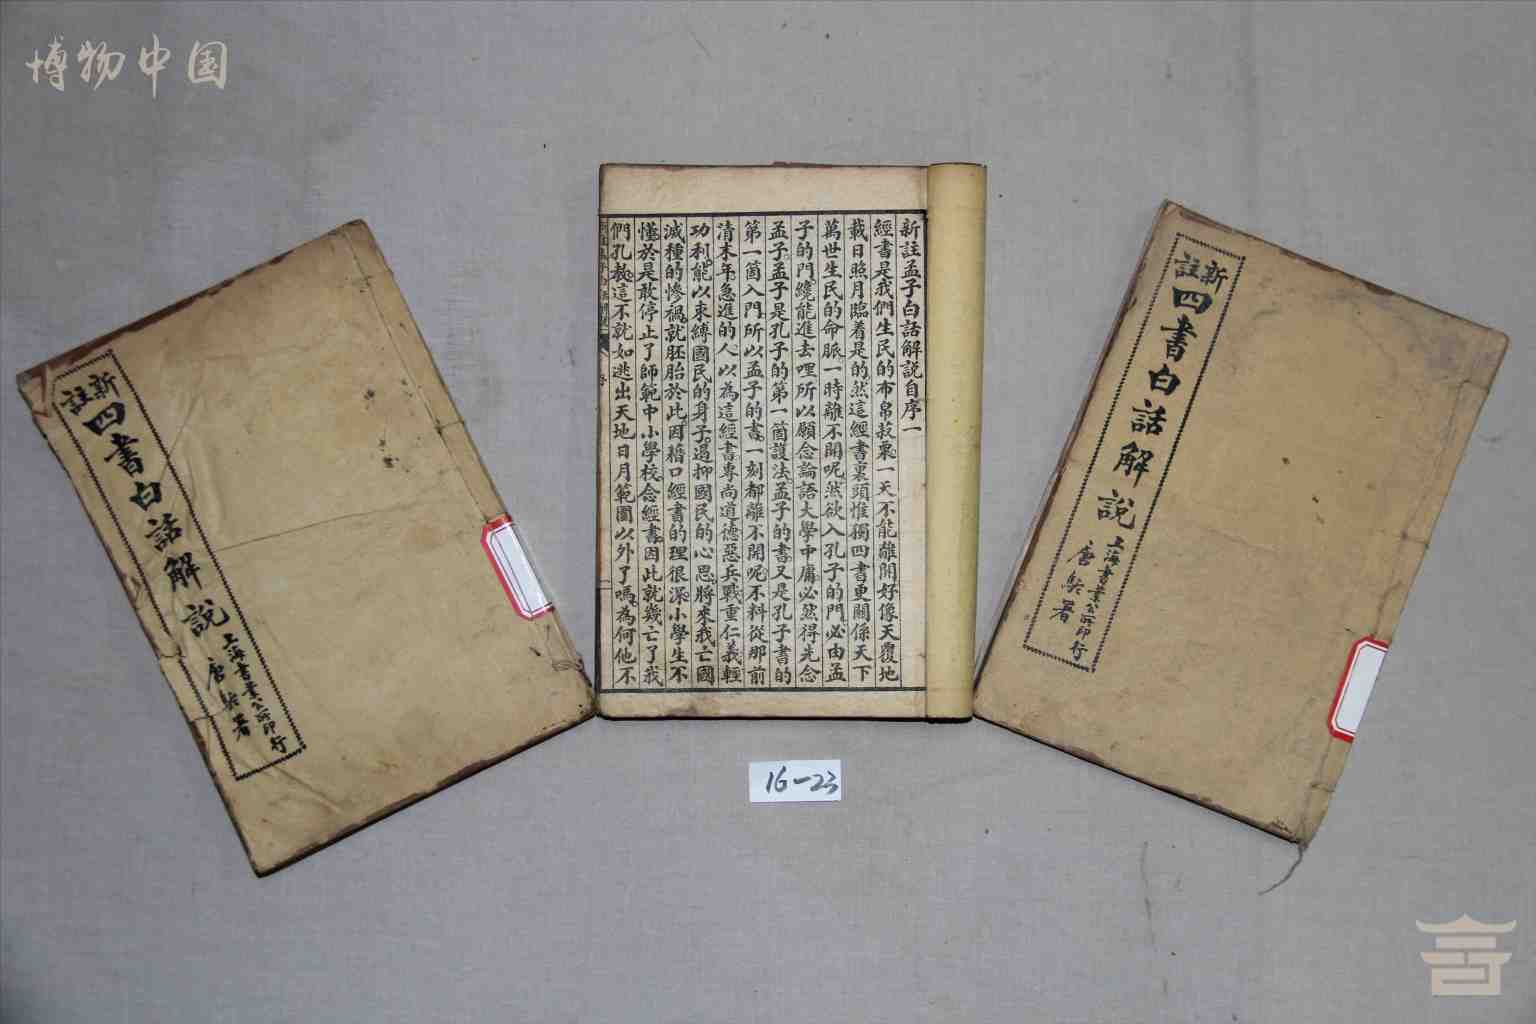 博物中国
新註
四書白話解說
上海書業公所印行
唐 著
新註孟子白話解說自序一
經書是我們生民的布帛菽粟一天不能離開好像天覆地
載日照月臨着是的然這經書裏頭惟獨四書更關係天下
萬世生民的命脈一時離不開呢然欲入孔子的門必由孟
子的門纔能進去哩所以願念論語大學中庸必然得先念
孟子孟子是孔子的第一箇護法孟子的書又是孔子書的
第一箇入門所以孟子的書一刻都離不開呢不料從那前
清末年急進的人以為這經書專尚道德惡兵戰重仁義輕
功利能以束縛國民的身子遏抑國民的心思將來我亡國
滅種的慘禍就胚胎於此因藉口經書的理很深小學生不
懂於是敢停止了師範中小學校念經書因此就幾亡了我
們孔教這不就如逃出天地日月範圍以外了嗎為何他不
新註
四書白話解說
上海書業公所印行
唐 著
16-23